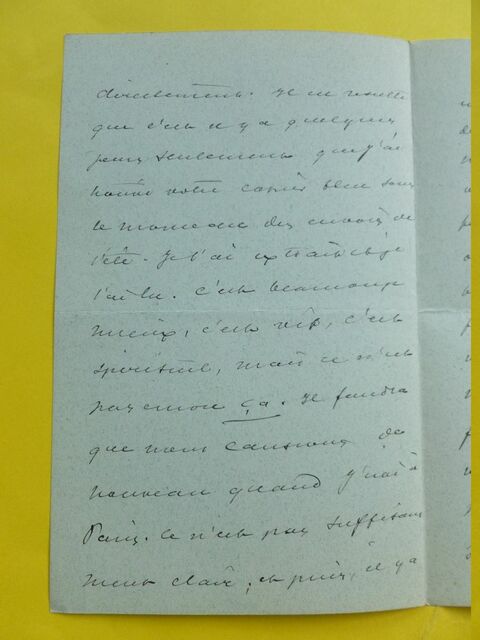 directement. Il en résulte
que c'est il y a quelques
jours seulement que j'ai
trouvé votre cahier bleu sous
le monceau des envois de
l'été. Je l'ai extrait et je
l'ai lu. C'est beaucoup
mieux, c'est vif, c'est
spirituel, mais ce n'est
pas encore ça. Il faudra
que nous causions de
nouveau quand j'irai à
Paris. Ce n'est pas suffisam
ment clair, et puis, il y a